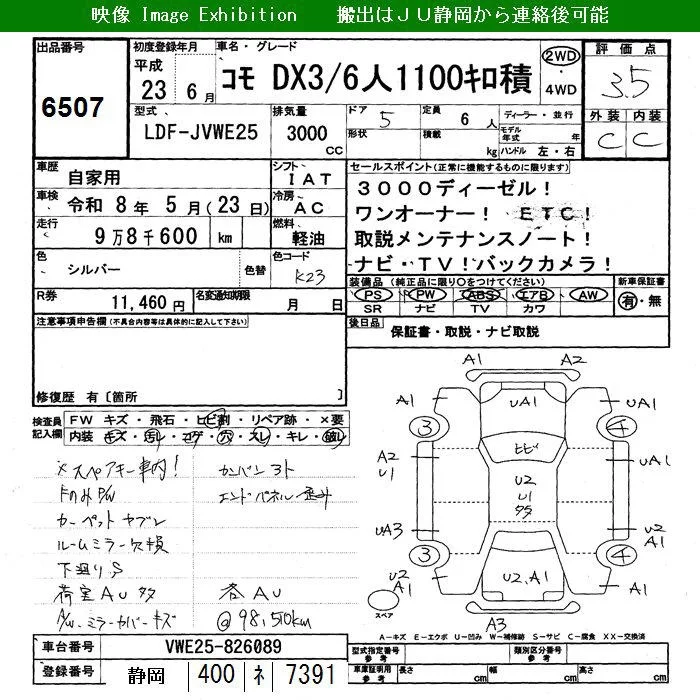 映像 Image Exhibition 搬出はＪＵ静岡から連絡後可能
出品番号
6507
初度登録年月
平成
23年 6月
車名・グレード
コモ DX3/6人1100ｷﾛ積
2WD
・
4WD
評価点
3.5
外装 内装
C C
型式
LDF-JVWE25
排気量
3000
cc
ドア
5
定員
6 人
形状
積載
kg
ディーラー・並行
モデル年式
年
ハンドル 左・右
車歴
自家用
シフト
IAT
車検
令和 8年 5月(23日)
冷房
AC
走行
9万8千600 km
燃料
軽油
色
シルバー
色替
色コード
K23
R券
11,460円
名変通知期限
月 日
セールスポイント(正常に機能するものに限ります)
3000ディーゼル！
ワンオーナー！ ETC！
取説メンテナンスノート！
ナビ・TV！バックカメラ！
装備品(純正品に限り○をつけてください)
PS PW ABS エアB AW
SR ナビ TV カワ
新車保証書
有・無
後日品
保証書・取説・ナビ取説
注意事項申告欄(不具合内容等は具体的に記入して下さい)
修復歴 有〔箇所 〕
検査員
記入欄
FW キズ・飛石・ヒビ割・リペア跡・×要
内装 キズ・汚レ・コゲ・穴・スレ・キレ・破レ
×スペアキー車内！
Fのみ P/W
カーペットヤブレ
ルームミラー欠損
下廻りS
荷室AU多
カンバン跡
エンドパネル歪み
各AU
@98,510km
A1 A2
A1 UA1 UA1
3 4
A2
U1
ヒビ
UA1
U2
U1
UA3
U2
A1
3 4
U2
A1
U2,A1
A1
スペア
A3
A－キズ E－エクボ U－凹み W－補修跡 S－サビ C－腐食 XX－交換済
車台番号
VWE25-826089
登録番号
静岡 400 ﾈ 7391
型式指定番号
参考
類別区分番号
参考
車庫証明用
参考
長さ cm
幅 cm
高さ cm